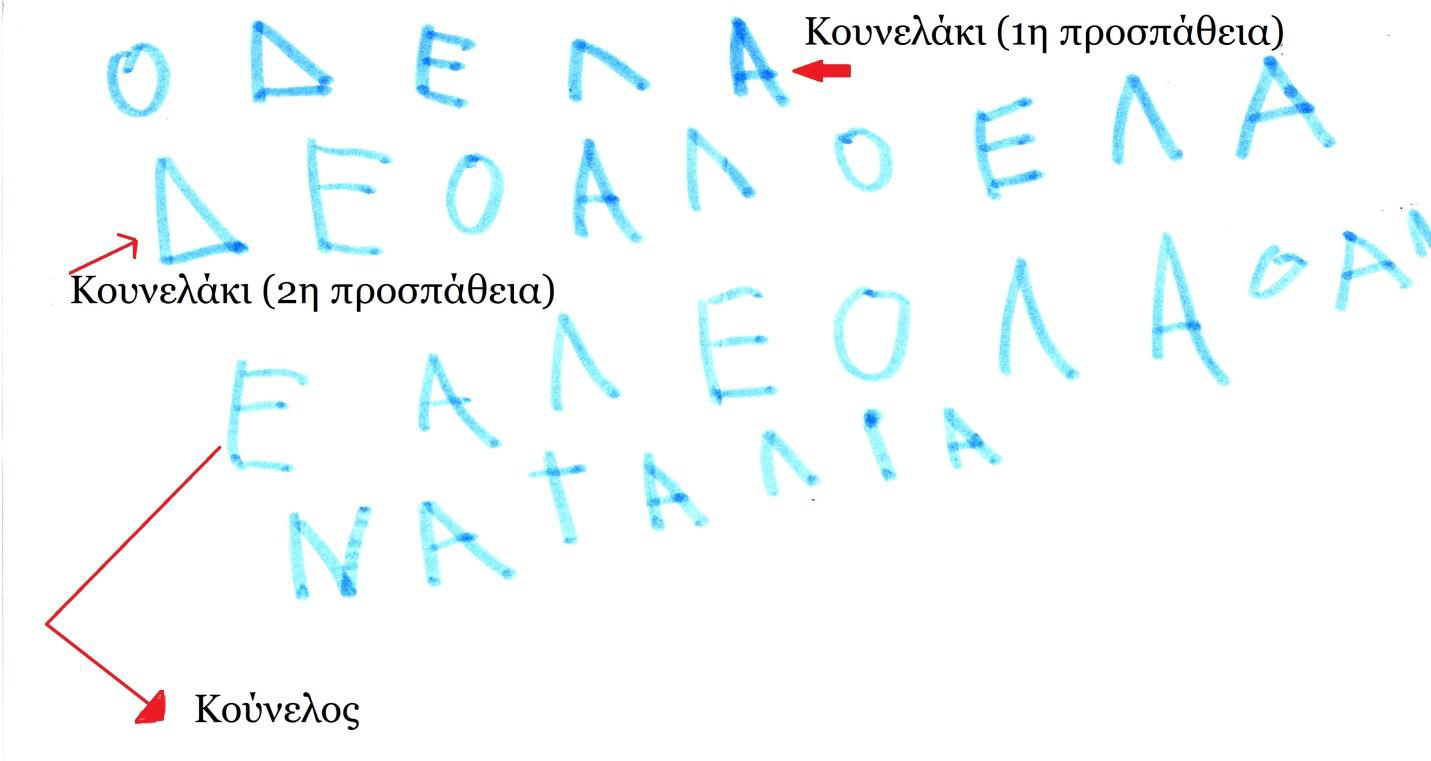 Ο Δ Ε Λ Α Κουνελάκι (1η προσπάθεια)
Δ Ε Ο Α Λ Ο Ε Λ Α
Κουνελάκι (2η προσπάθεια)
Ε Α Λ Ε Ο Λ Α Ο Α Λ
Ν Α Τ Α Λ Ι Α
Κούνελος